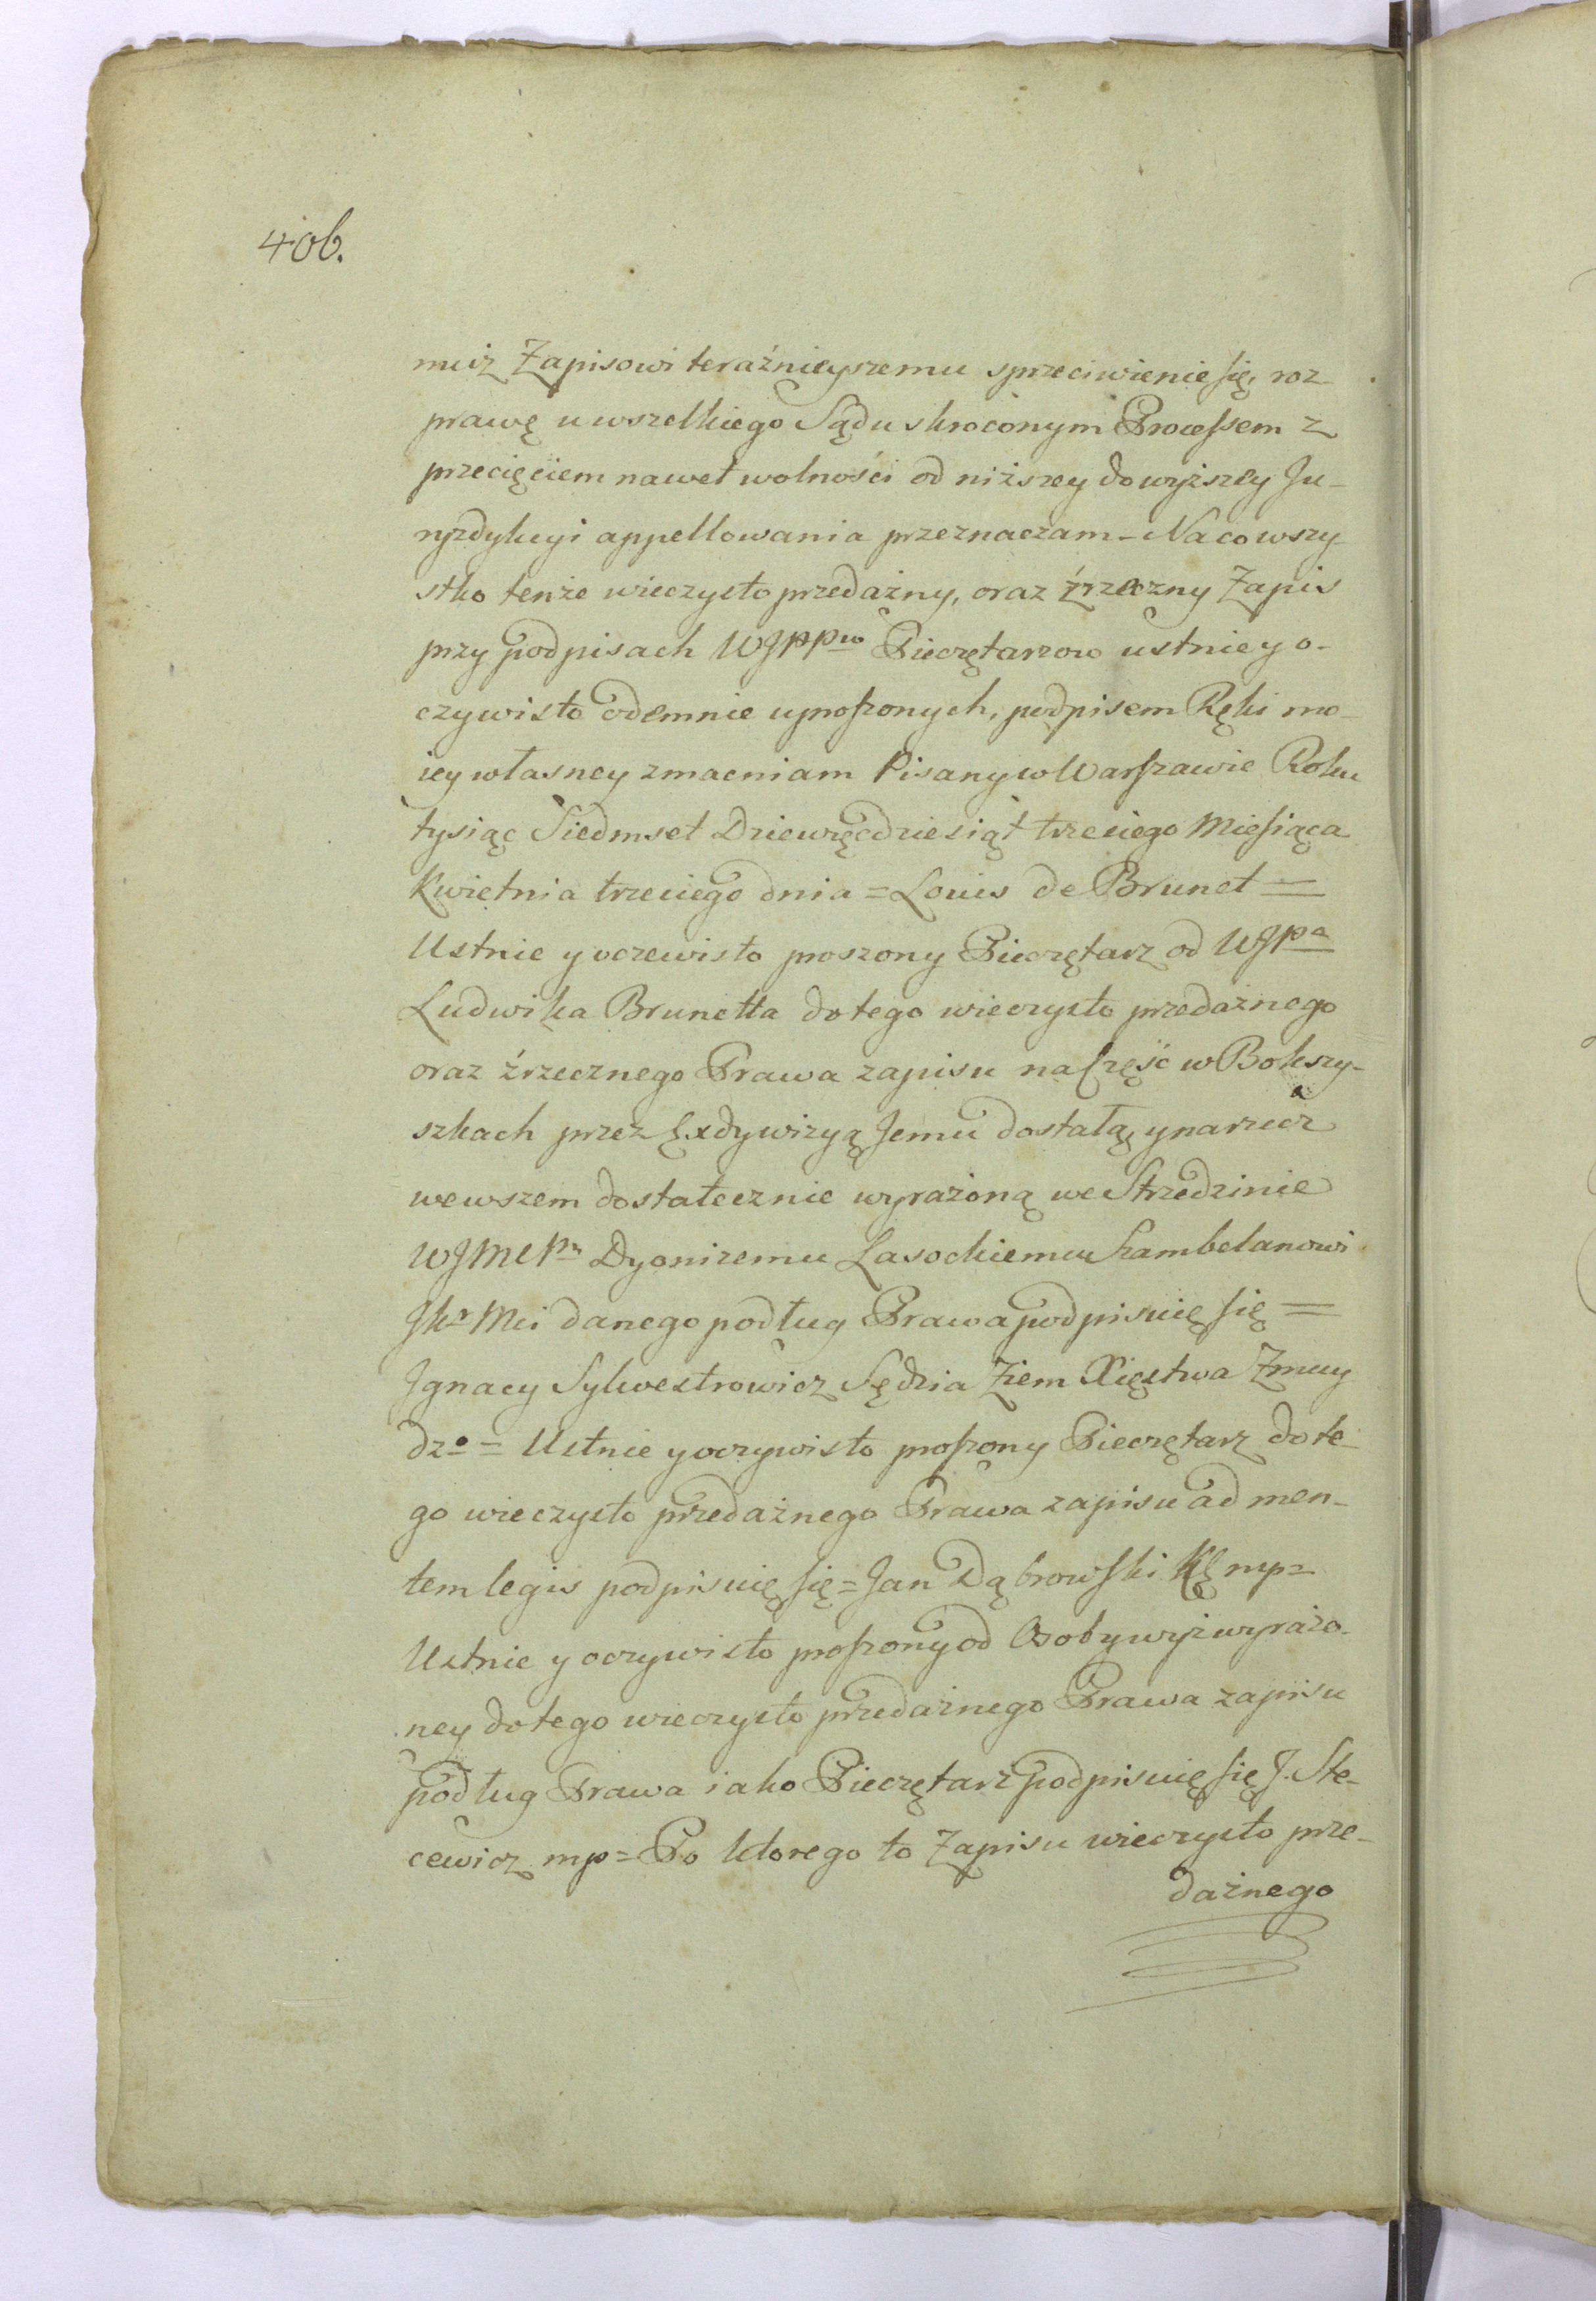 4ob.
muiż Zapisowi teraźnieyszemu sprzeciwienie się, roz-
prawę u wszelkiego Sądu skroconym Processem z
przecięciem nawet wolności od niższey do wyższey Ju-
ryzdykcyi appellowania przeznaczam - Na co wszy-
stko tenże wieczysto przedażny, oraz źrzeczny Zapis
przy podpisach WJPPw Pieczętarzow ustnie y o-
czywisto odemnie uproszonych, podpisem Ręki mo-
iey własney zmacniam Pisany w Warszawie Roku
tysiąc Siedmset Dziewięcdziesiąt trzeciego Miesiąca
Kwietnia trzeciego dnia = Louis de Brunet =
Ustnie y oczewisto proszony Pieczętarz od WJPa
Ludwika Brunetta do tego wieczysto przedażnego
oraz źrzecznego Prawa zapisu na Część w Bokszy-
szkach przez Exdywizyą Jemu dostałą, y na rzecz
wewszem dostatecznie wyrażoną we Strzedzinie
WJMCPn Dyonizemu Lasockiemu Szambelanowi
JKr Mci danego podług Prawa podpisuię się =
Ignacy Sylwestrowicz Sędzia Ziem Xięstwa Zmuy
dzo = Ustnie y oczywisto proszony Pieczętarz do te-
go wieczysto przedażnego Prawa zapisu ad men-
tem legis podpisuię się = Jan Dąbrowski mp =
Ustnie y oczywisto proszony od Osoby wyż wyrażo-
ney do tego wieczysto przedażnego Prawa zapisu
podług Prawa iako Pieczętarz podpisuię się J. Ste-
cewicz mp = Po ktorego to Zapisu wieczysto prze-
dażnego